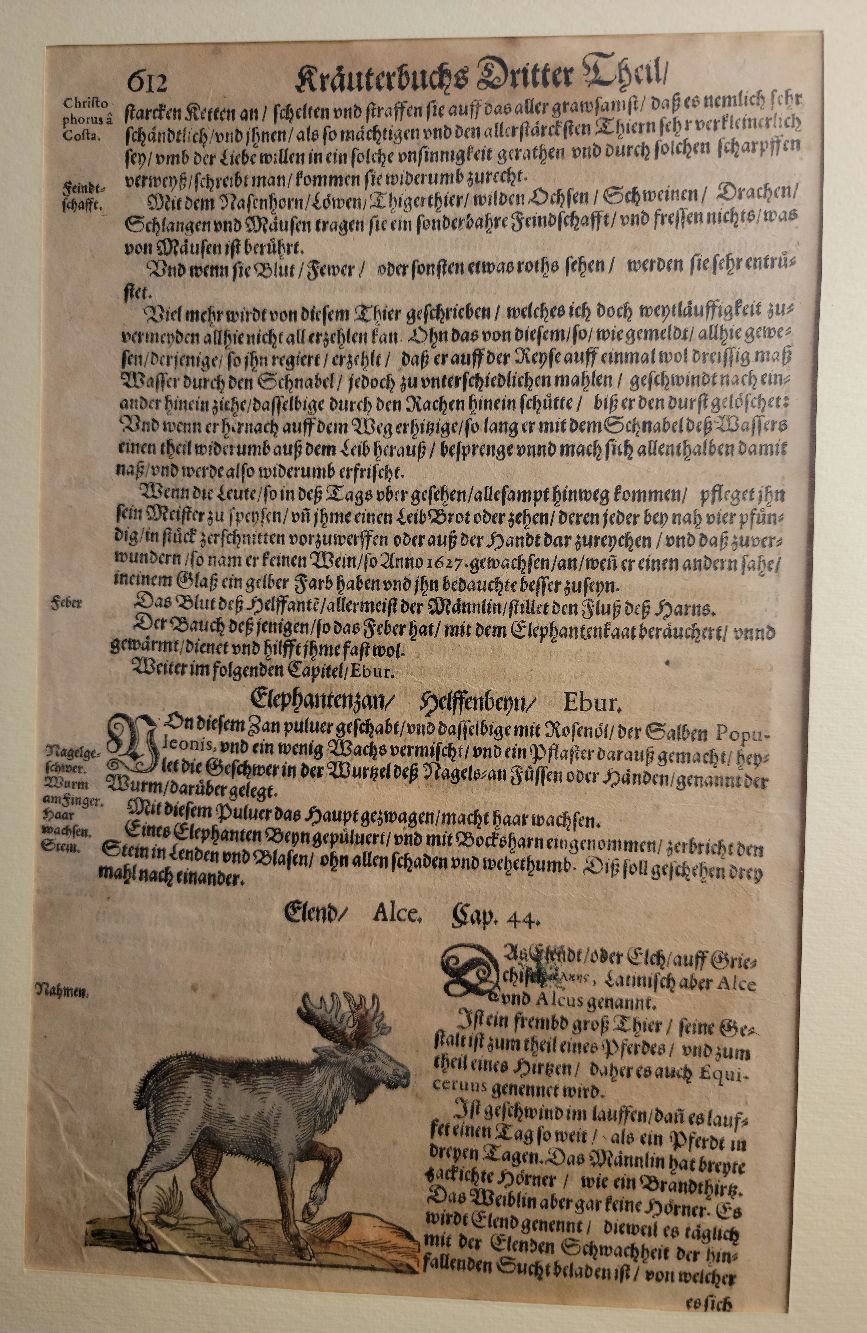 612 Kräuterbuchs Dritter Theil/
Christo
phorus â
Costa.
starcken Ketten an / schelten vnd straffen sie auff das aller grawsamst / daß es nemlich sehr
schändtlich/vnd jhnen/ als so mächtigen vnd den allerstärcksten Thiern sehr verkleinerlich
sey/ vmb der Liebe willen in ein solche vnsinnigkeit gerathen vnd durch solchen scharpffen
verweyß/schreibt man/kommen sie widerumb zurecht.
Feindt-
schafft.
Mit dem Nasenhorn/Löwen/Thigerthier/ wilden Ochsen / Schweinen / Drachen/
Schlangen vnd Mäusen tragen sie ein sonderbahre Feindschafft/ vnd fressen nichts/was
von Mäusen ist berührt.
Vnd wenn sie Blut / Fewer / oder sonsten etwas roths sehen / werden sie sehr entrü-
stet.
Viel mehr wirdt von diesem Thier geschrieben / welches ich doch weytläuffigkeit zu-
vermeyden allhie nicht all erzehlen kan. Ohn das von diesem/so/ wie gemeldt/ allhie gewe-
sen/derjenige/ so jhn regiert / erzehlt / daß er auff der Reyse auff einmal wol dreissig maß
Wasser durch den Schnabel / jedoch zu vnterschiedlichen mahlen / geschwindt nach ein-
ander hinein ziehe/dasselbige durch den Rachen hinein schütte / biß er den durst gelöschet:
Vnd wenn er hernach auff dem Weg erhitzige/so lang er mit dem Schnabel deß Wassers
einen theil widerumb auß dem Leib herauß / besprenge vnnd mach sich allenthalben damit
naß/vnd werde also widerumb erfrischt.
Wenn die Leute/so in deß Tags vber gesehen/allesampt hinweg kommen/ pfleget jhn
sein Meister zu speysen/ vñ jhme einen Leib Brot oder zehen/ deren jeder bey nah vier pfün-
dig/in stück zerschnitten vorzuwerffen oder auß der Handt dar zureychen / vnd daß zuver-
wundern /so nam er keinen Wein/so Anno 1627. gewachsen/an/ weñ er einen andern sahe/
in einem Glaß ein gelber Farb haben vnd jhn bedauchte besser zuseyn.
Feber
Das Blut deß Helffantē/allermeist der Männlin/stillet den Fluß deß Harns.
Der Bauch deß jenigen/so das Feber hat/ mit dem Elephantenkaat beräuchert/ vnnd
gewärmt/dienet vnd hilfft jhme fast wol.
Weiter im folgenden Capitel/Ebur.
Elephantenzan/ Helffenbeyn/ Ebur.
VOn diesem Zan puluer geschabt/vnd dasselbige mit Rosenöl/ der Salben Popu-
leonis, vnd ein wenig Wachs vermischt/ vnd ein Pflaster darauß gemacht/ hey-
let die Geschwer in der Wurtzel deß Nagels an Füssen oder Händen/genannt der
Wurm/darüber gelegt.
Nagelge-
schwer.
Wurm
am Finger.
Haar
wachsen.
Stein.
Mit diesem Puluer das Haupt gezwagen/macht haar wachsen.
Eints Elephanten Beyn gepüluert/ vnd mit Bocksharn eingenommen/ zerbricht den
Stein in Lenden vnd Blasen/ ohn allen schaden vnd wehethumb. Diß soll geschehen drey
mahl nach einander.
Elend/ Alce. Cap. 44.
Nahmen.
DAs Elendt/oder Elch/auff Grie-
chisch , Latinisch aber Alce
vnd Alcus genannt.
Ist ein frembd groß Thier / seine Ge-
stalt ist zum theil eines Pferdes / vnd zum
theil eines Hirtzen / daher es auch Equi-
ceruus genennet wird.
Ist geschwind im lauffen/dañ es lauf-
fet einen Tag so weit / als ein Pferdt in
dreyen Tagen. Das Männlin hat breyte
zackichte Hörner / wie ein Brandthirtz.
Das Weiblin aber gar keine Hörner. Es
wirdt Elend genennt / dieweil es täglich
mit der Elenden Schwachheit der hin-
fallenden Sucht beladen ist / von welcher
es sich